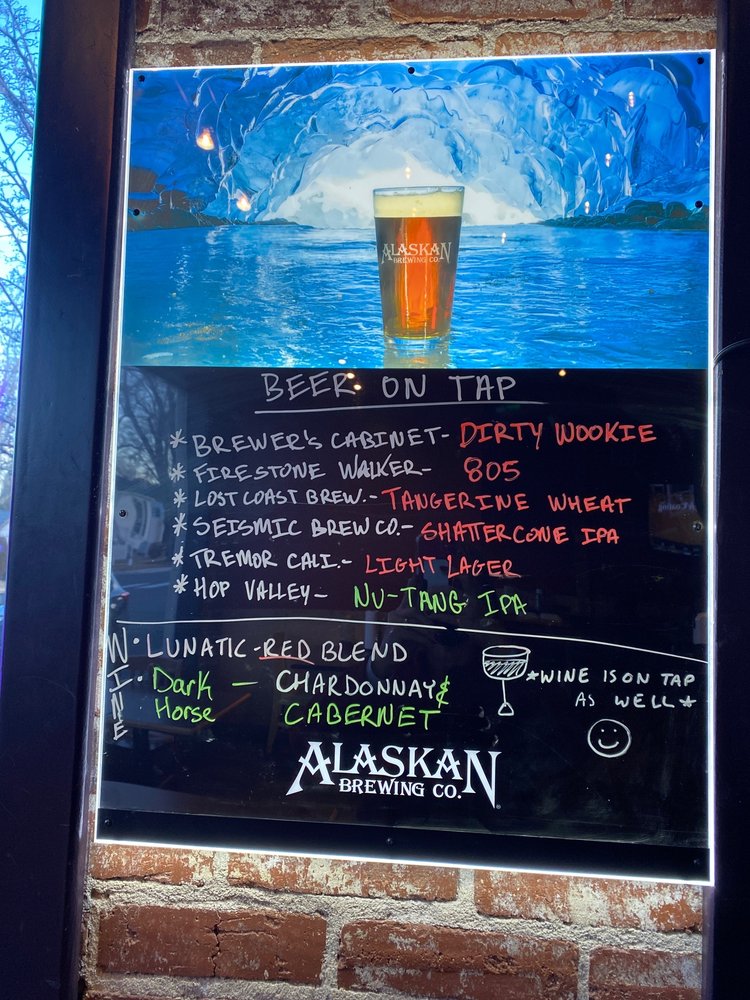 ALASKAN
BREWING CO.
BEER ON TAP
* BREWER'S CABINET - DIRTY WOOKIE
* FIRESTONE WALKER - 805
* LOST COAST BREW. - TANGERINE WHEAT
* SEISMIC BREW CO. - SHATTERCONE IPA
* TREMOR CALI. - LIGHT LAGER
* HOP VALLEY - NU-TANG IPA
WINE
• LUNATIC - RED BLEND
• Dark Horse — CHARDONNAY &
CABERNET
*WINE IS ON TAP
AS WELL*
ALASKAN
BREWING CO.®